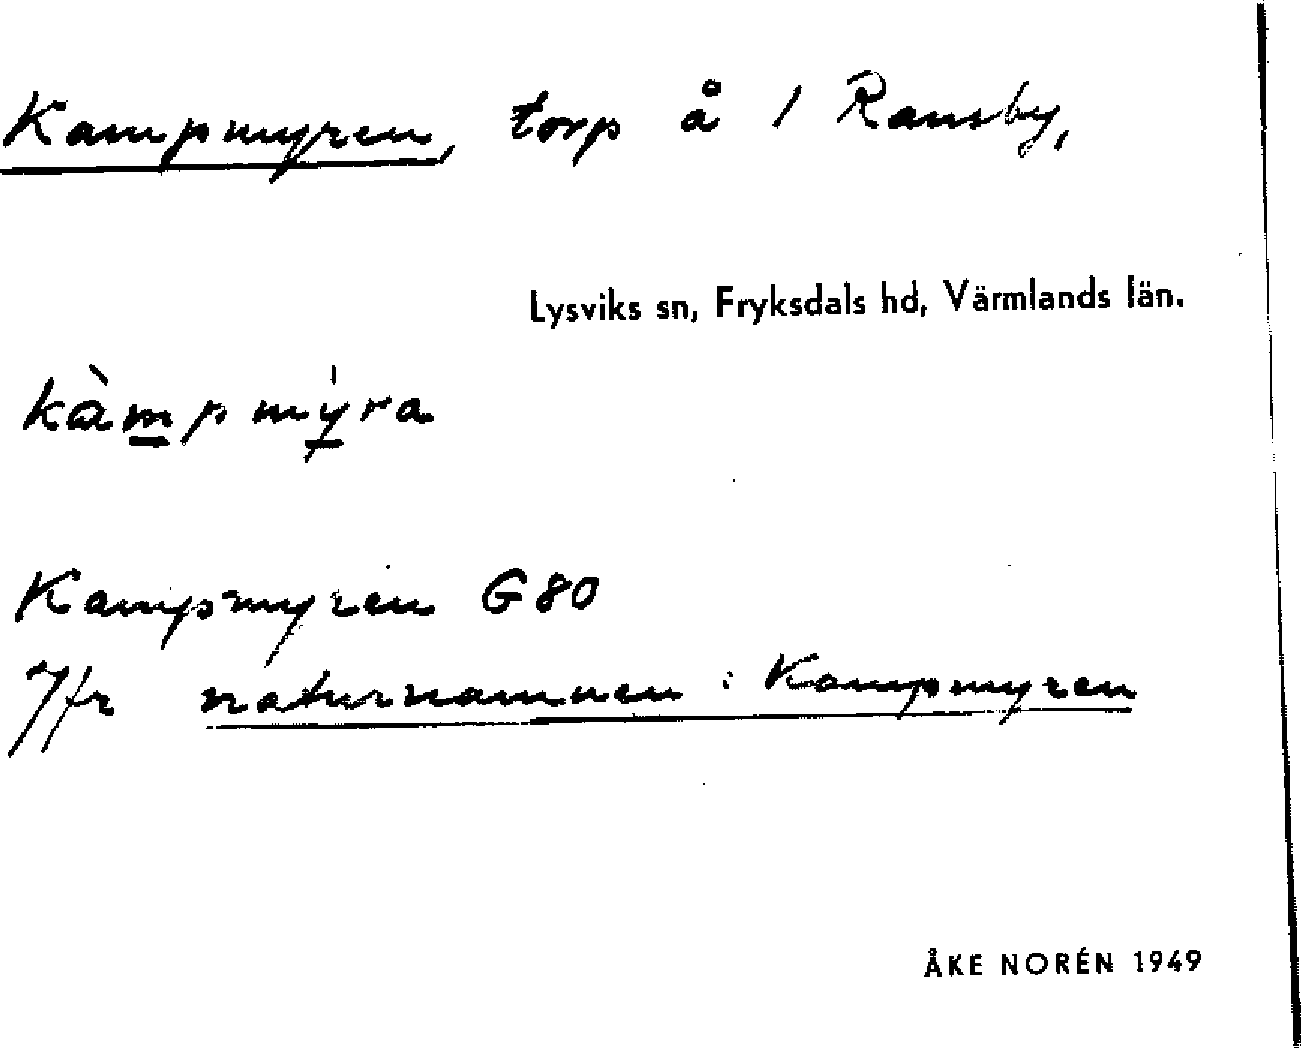 Kampmyren, torp å 1 Ransby,
Lysviks sn, Fryksdals hd, Värmlands län.
kàmpmýra
Kampmyren G80
Jfr naturnamnen: Kampmyren
ÅKE NORÉN 1949